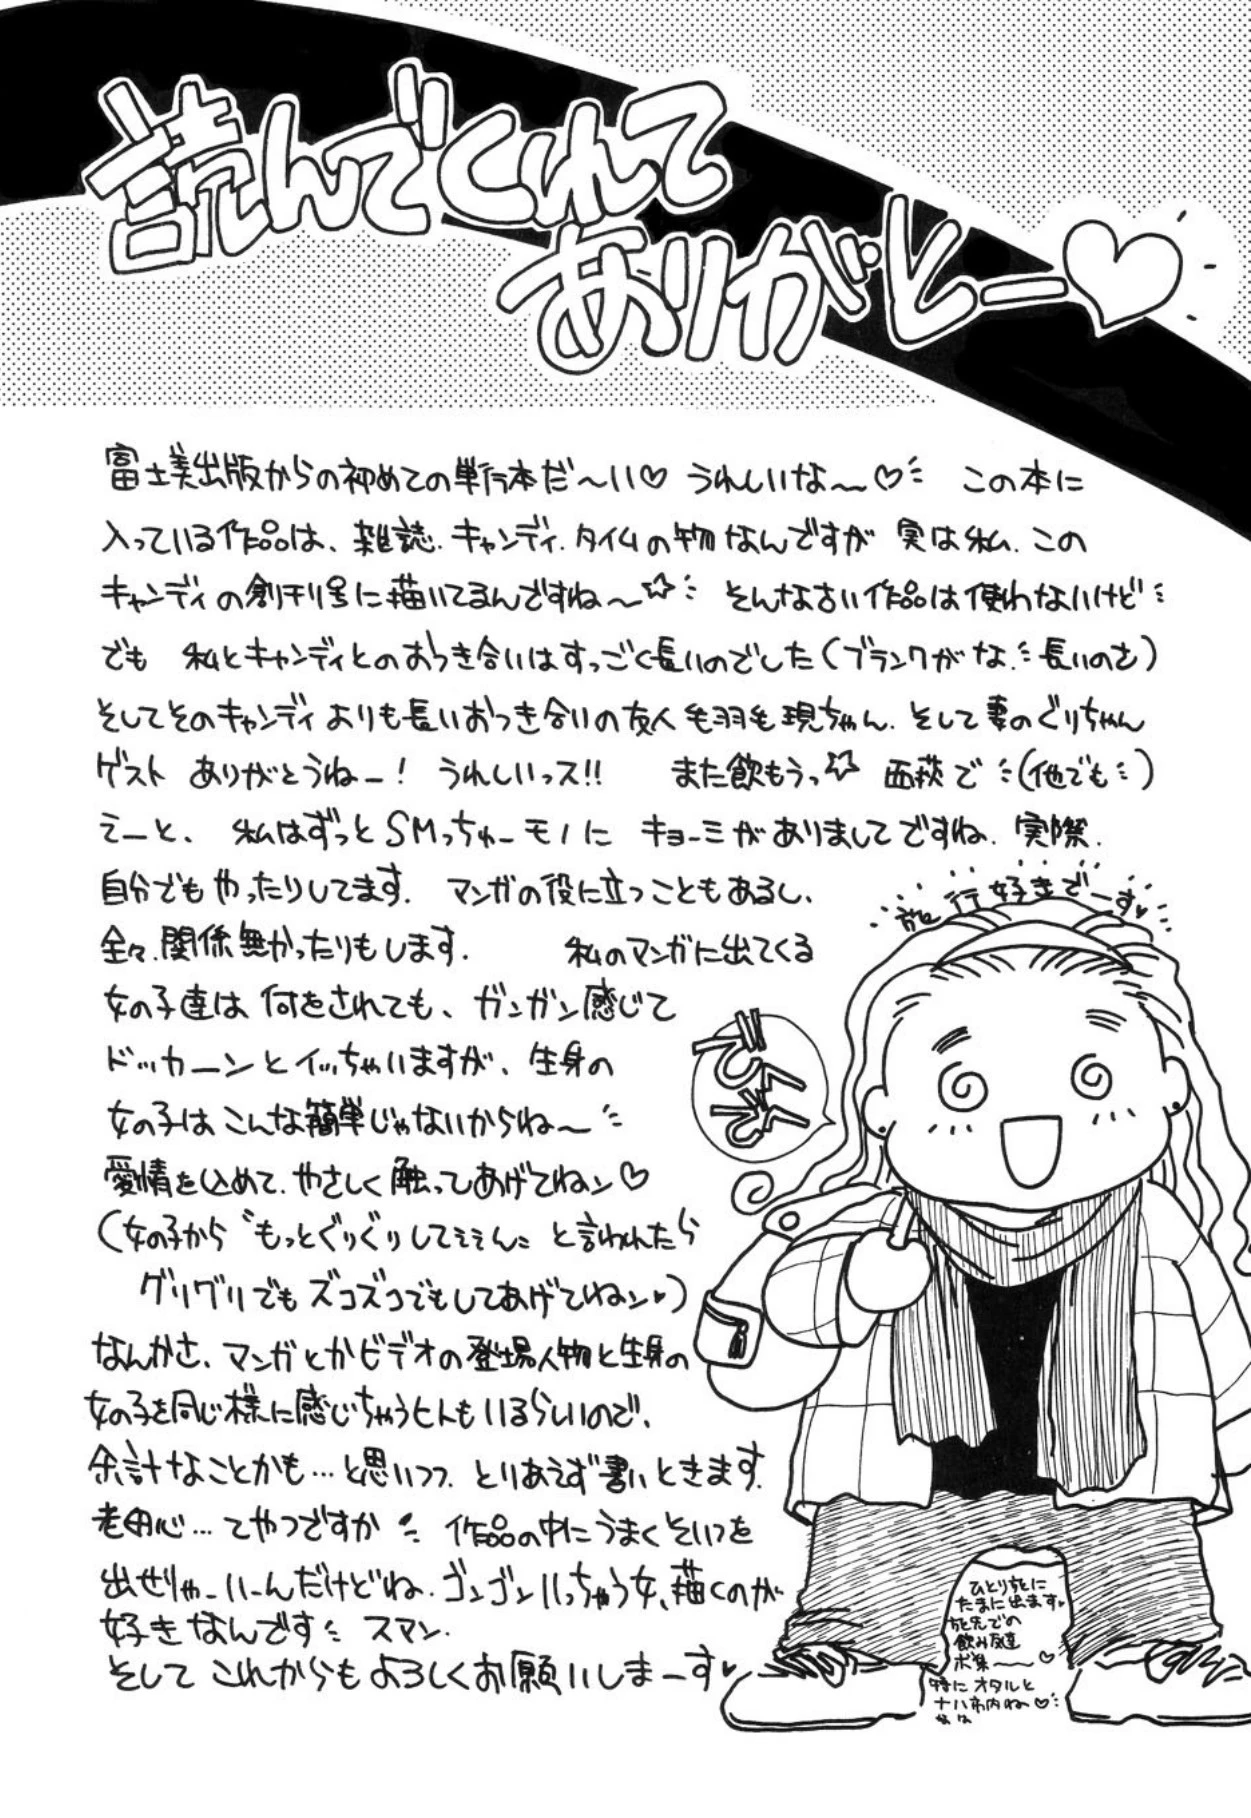 読んでくれて
ありがとー♡
富士美出版からの初めての単行本だ〜い♡ うれしいな〜♡ この本に
入っている作品は、雑誌.キャンディ.タイムの物なんですが 実は私.この
キャンディの創刊号に描いてるんですね〜☆ そんな古い作品は使わないけど
でも 私とキャンディとのおつき合いはすっごく長いのでした(ブランクがな.長いのさ)
そしてそのキャンディよりも長いおつき合いの友人毛羽毛現ちゃん.そして妻のぐりちゃん
ゲスト ありがとうねー! うれしいっス!! また飲もうっ☆ 西荻で(他でも)
えーと、 私はずっとSMっちゅーモノに キョーミがありましてですね.実際.
自分でもやったりしてます. マンガの役に立つこともあるし、
全々.関係無かったりもします. 私のマンガに出てくる
女の子達は 何をされても、ガンガン感じて
ドッカーンとイッちゃいますが、生身の
女の子はこんな簡単じゃないからね〜
愛情を込めて.やさしく触ってあげてねン♡
(女の子から〝もっとぐりぐりしてぇぇん〟と言われたら
グリグリでもズコズコでもしてあげてねン♥)
なんかさ、マンガとかビデオの登場人物と生身の
女の子を同じ様に感じちゃうヒトもいるらしいので、
余計なことかも…と思いつつ.とりあえず書いときます.
老用心…てやつですか 作品の中にうまくそいつを
出せりゃーいーんだけどね.ゴンゴンいっちゃう女、描くのが
好きなんです スマン.
そして これからもよろしくお願いしまーす♥
旅行好きでーす♥
ひとり旅に
たまに出ます♥
旅先での
飲み友達
ボ集〜♡
特にオタルと
ナハ市内ね♡